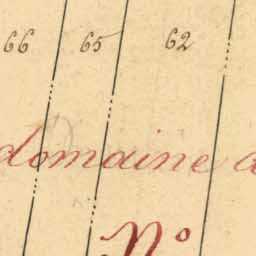 66 65 62
domaine
No